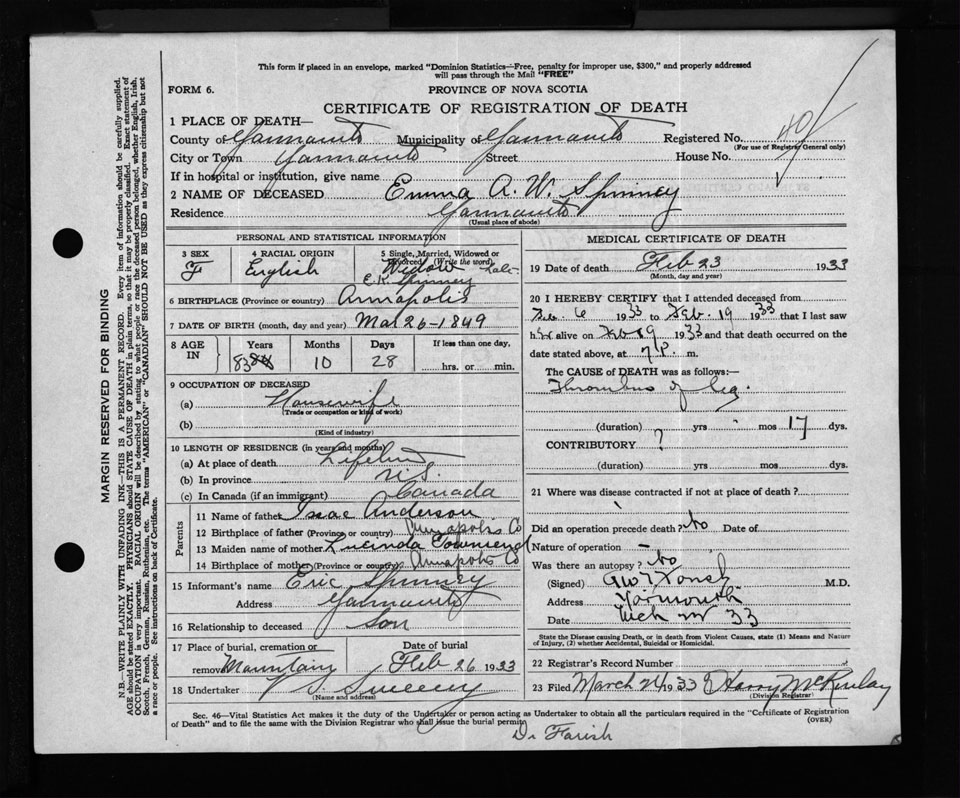 This form if placed in an envelope, marked "Dominion Statistics—Free, penalty for improper use, $300," and properly addressed
will pass through the Mail "FREE"
FORM 6. PROVINCE OF NOVA SCOTIA
CERTIFICATE OF REGISTRATION OF DEATH
1 PLACE OF DEATH—
County of Yarmouth Municipality of Yarmouth Registered No. 40
(For use of Registrar General only)
City or Town Yarmouth Street House No.
If in hospital or institution, give name
2 NAME OF DECEASED Emma A. W. Spinney
Residence Yarmouth
(Usual place of abode)
PERSONAL AND STATISTICAL INFORMATION
3 SEX 4 RACIAL ORIGIN 5 Single, Married, Widowed or
Divorced (Write the word)
F English Widow Late
E. K. Spinney
6 BIRTHPLACE (Province or country) Annapolis
7 DATE OF BIRTH (month, day and year) Mar 26-1849
8 AGE IN Years Months Days If less than one day,
83 10 28 hrs. or min.
9 OCCUPATION OF DECEASED
(a) Housewife
(Trade or occupation or kind of work)
(b)
(Kind of industry)
10 LENGTH OF RESIDENCE (in years and months)
(a) At place of death Lifetime
(b) In province N.S.
(c) In Canada (if an immigrant) Canada
Parents
11 Name of father Isac Anderson
12 Birthplace of father (Province or country) Annapolis Co
13 Maiden name of mother Lucinda Townsend
14 Birthplace of mother (Province or country) Annapolis Co
15 Informant's name Eric Spinney
Address Yarmouth
16 Relationship to deceased son
17 Place of burial, cremation or Date of burial
removal Mountain Feb 26 1933
18 Undertaker V S Sweeny
(Name and address)
MEDICAL CERTIFICATE OF DEATH
19 Date of death Feb 23 1933
(Month, day and year)
20 I HEREBY CERTIFY that I attended deceased from
Feb. 6 1933 to Feb. 19 1933 that I last saw
h alive on Feb 19 1933 and that death occurred on the
date stated above, at 7 P. m.
The CAUSE of DEATH was as follows:—
Thrombus of leg.
(duration) yrs mos 17 dys.
CONTRIBUTORY ?
(duration) yrs. mos. dys.
21 Where was disease contracted if not at place of death?
Did an operation precede death? No Date of
Nature of operation —
Was there an autopsy? No
(Signed) M.D.
Address Yarmouth
Date 33
State the Disease causing Death, or in death from Violent Causes, state (1) Means and Nature
of Injury, (2) whether Accidental, Suicidal or Homicidal.
22 Registrar's Record Number
23 Filed March 24 1933 Harry McKinlay
(Division Registrar)
Sec. 46—Vital Statistics Act makes it the duty of the Undertaker or person acting as Undertaker to obtain all the particulars required in the "Certificate of Registration
of Death" and to file the same with the Division Registrar who shall issue the burial permit.
(OVER)
Dr Farish
MARGIN RESERVED FOR BINDING
N.B.—WRITE PLAINLY WITH UNFADING INK—THIS IS A PERMANENT RECORD. Every item of information should be carefully supplied.
AGE should be stated EXACTLY. PHYSICIANS should STATE CAUSE OF DEATH in plain terms, so that it may be properly classified. Exact statement of
OCCUPATION is very important. RACIAL ORIGIN will be described by stating to what people or race the deceased person belonged, whether English, Irish,
Scotch, French, German, Russian, Ruthenian, etc. The terms "AMERICAN" or "CANADIAN" SHOULD NOT BE USED as they express citizenship but not
a race or people. See instructions on back of Certificate.